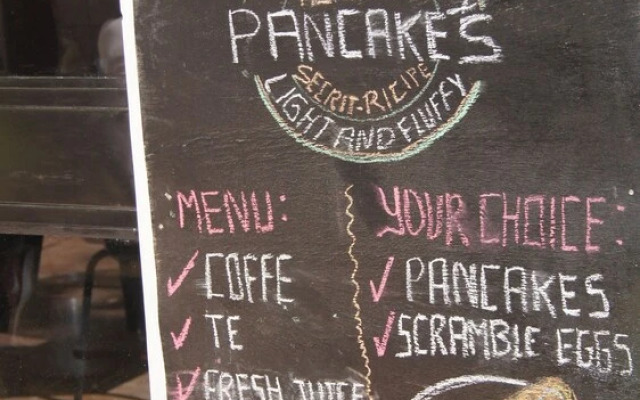 PANCAKES
SECRIT-RICIPE
LIGHT AND FLUFFY
MENU:
COFFE
TE
FRESH JUICE
YOUR CHOICE:
PANCAKES
SCRAMBLE EGGS